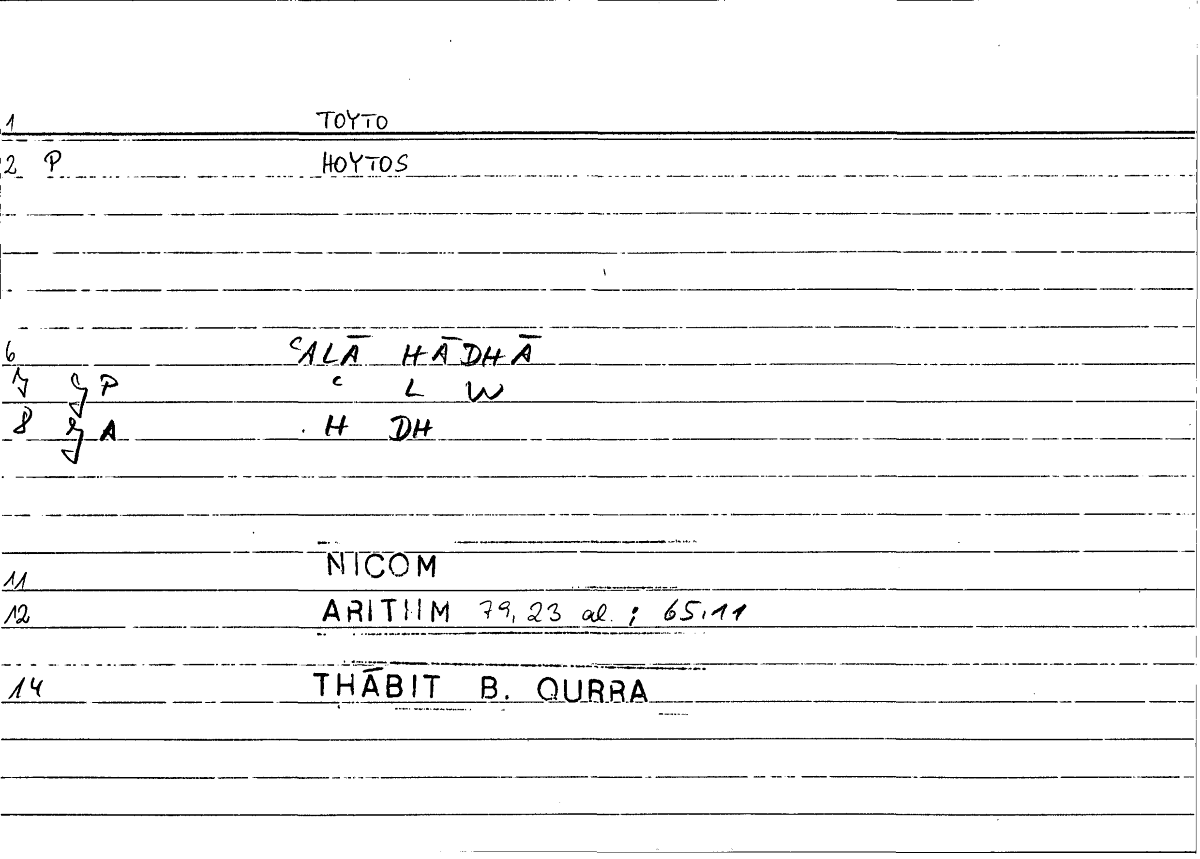 1 TOYTO
2 P HOYTOS
6 ʿALĀ HĀDHĀ
7 P ʿ L W
8 A H DH
11 NICOM
12 ARITHM 79,23 al. ; 65,11
14 THĀBIT B. QURRA